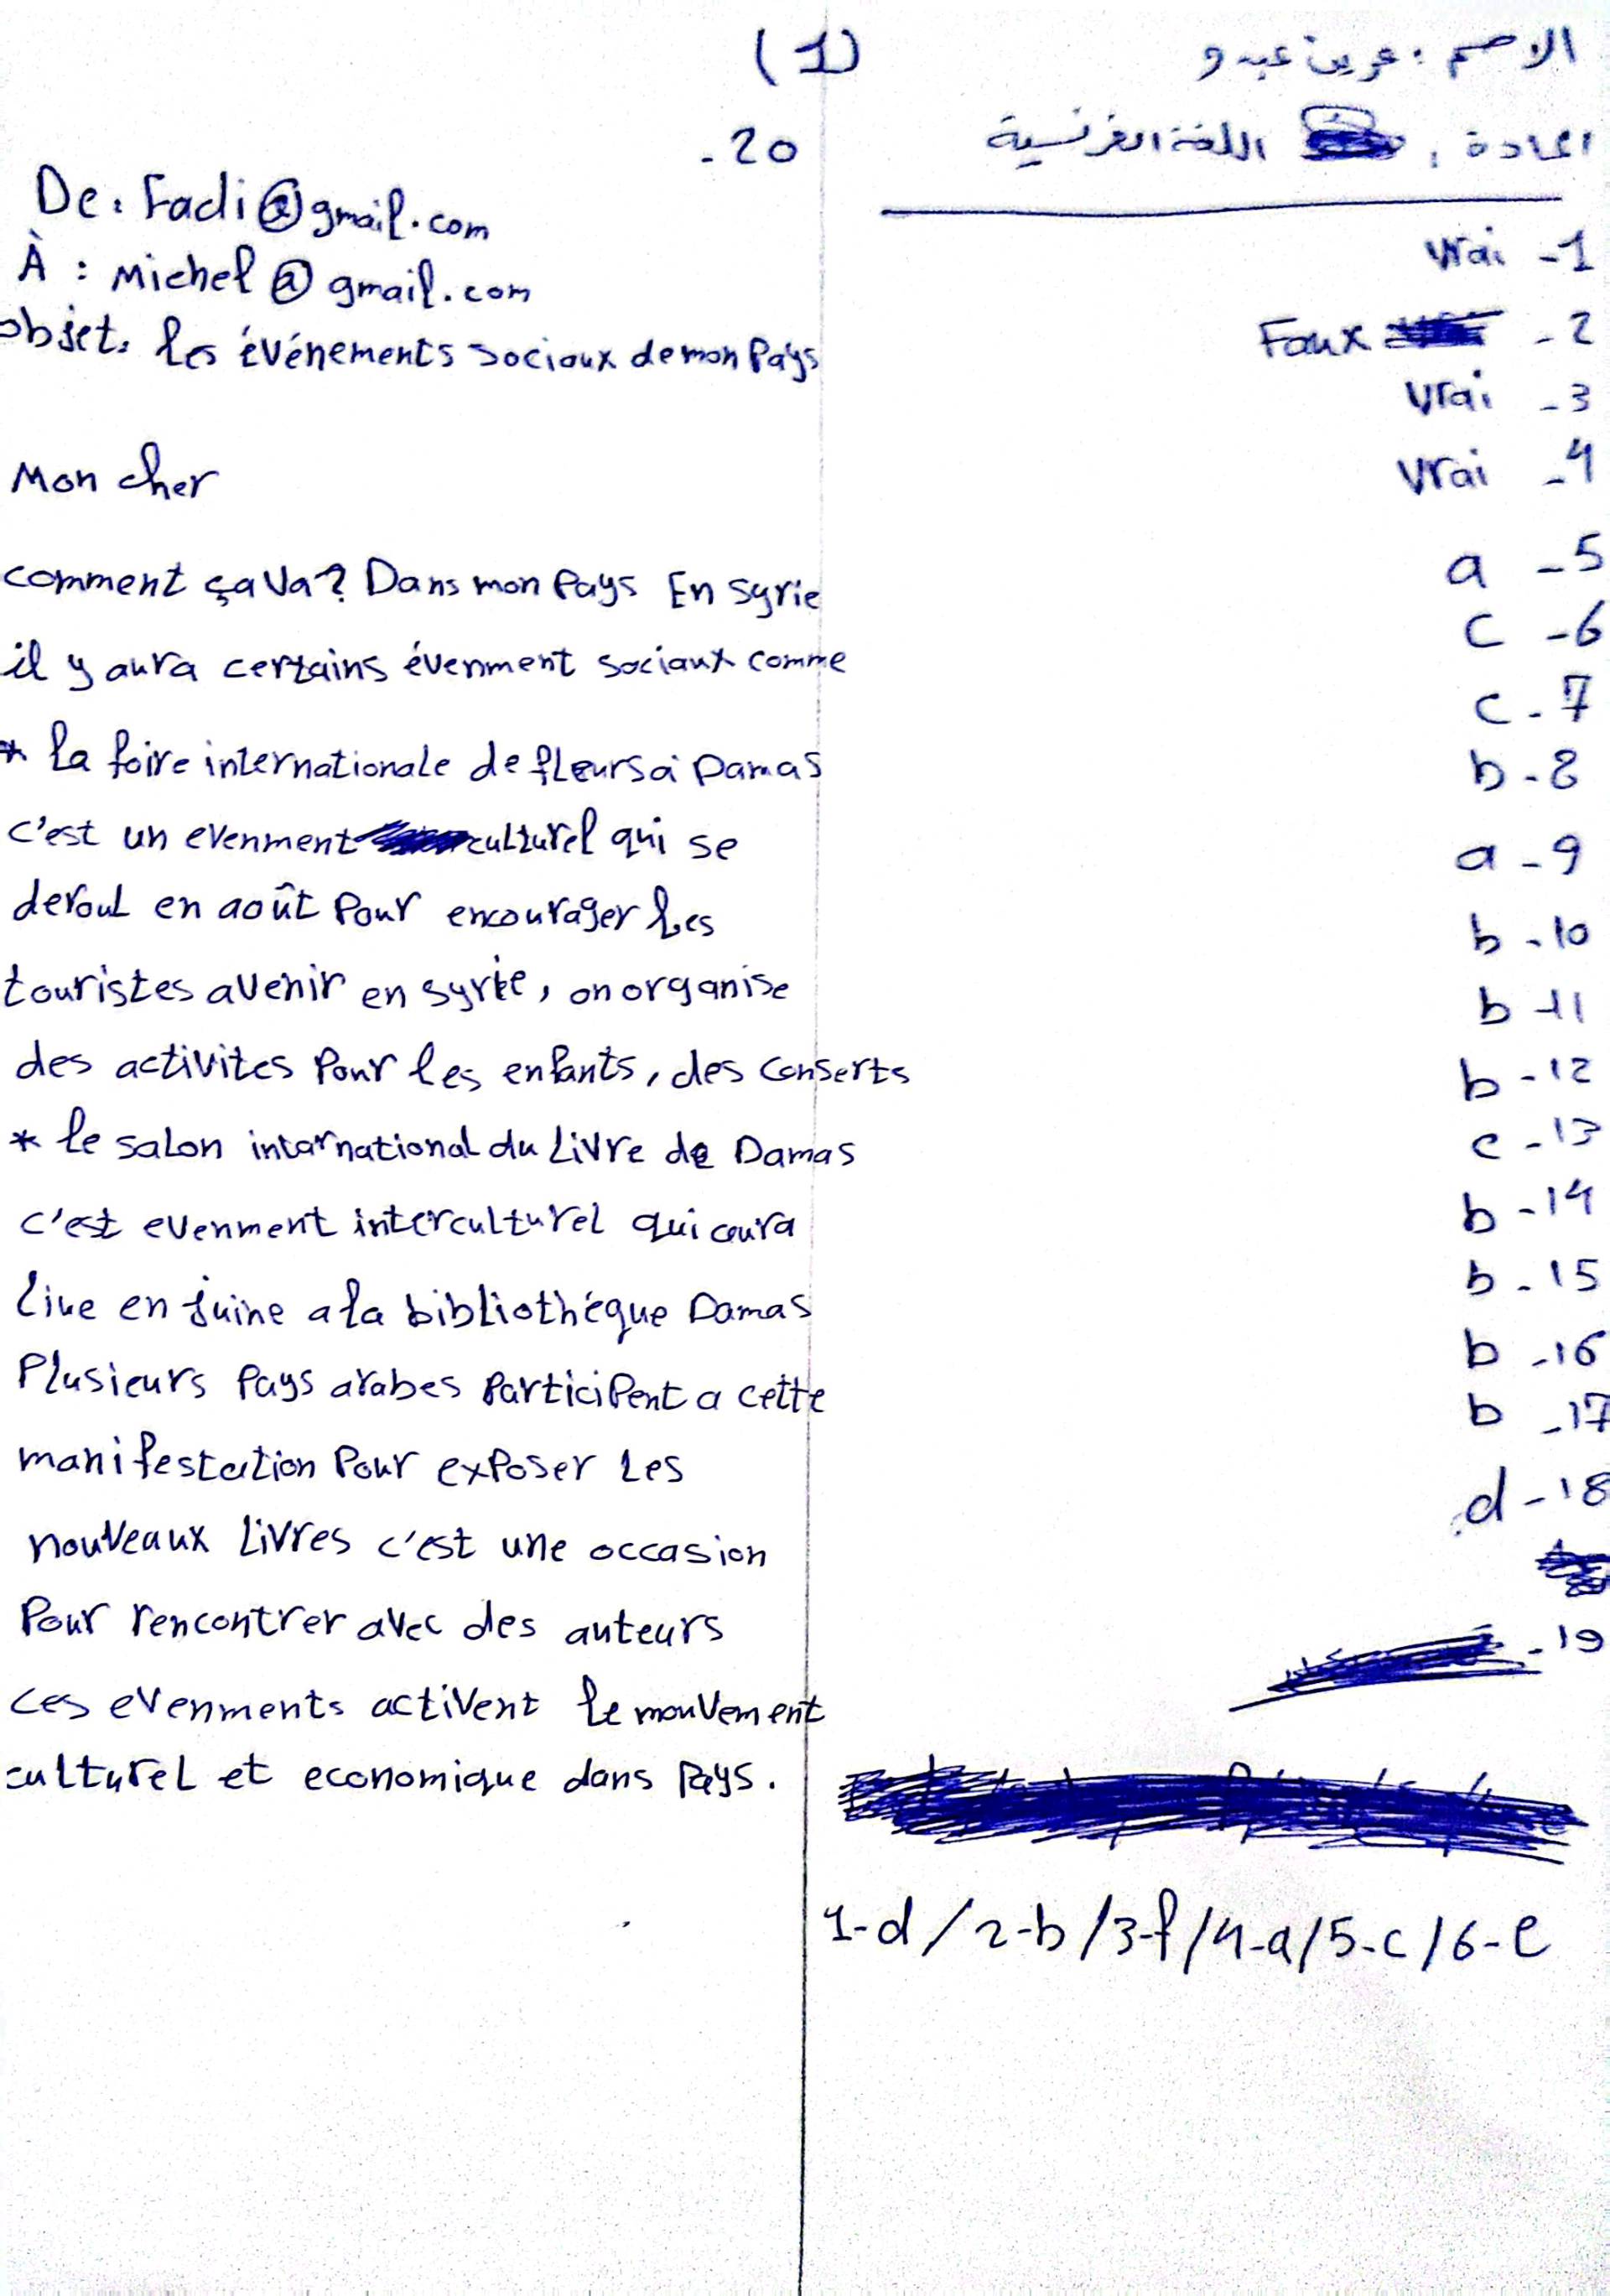 (1)
الاسم : عرين عبدو
المادة : اللغة الفرنسية
1- vrai
2- Faux
3- vrai
4- vrai
5- a
6- c
7- c
8- b
9- a
10- b
11- b
12- b
13- c
14- b
15- b
16- b
17- b
18- d
19-
1-d / 2-b / 3-f / 4-a / 5-c / 6-e
20-
De: Fadi@gmail.com
À : Michel@gmail.com
objet: les événements sociaux de mon Pays
Mon cher
comment ça va? Dans mon Pays En syrie
il y aura certains évenment sociaux comme
* la foire internationale de fleurs à Damas
c'est un evenment culturel qui se
deroul en août Pour encourager les
touristes a venir en syrie, on organise
des activites Pour les enfants, des conserts
* le salon international du Livre de Damas
c'est evenment interculturel qui aura
live en juine a la bibliothéque Damas
Plusieurs Pays arabes Participent a cette
manifestation Pour exposer les
nouveaux Livres c'est une occasion
Pour rencontrer avec des auteurs
ces evenments activent le mouvement
culturel et economique dans Pays.